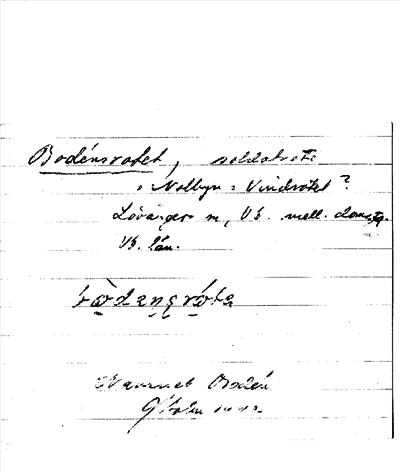 Bodénsrotet, soldatrote
i Nolbyn = Vindrotet?
Lövångers sn, Vb. mell. domsg.
Vb. län.
bodansrota
Namnet Bodén